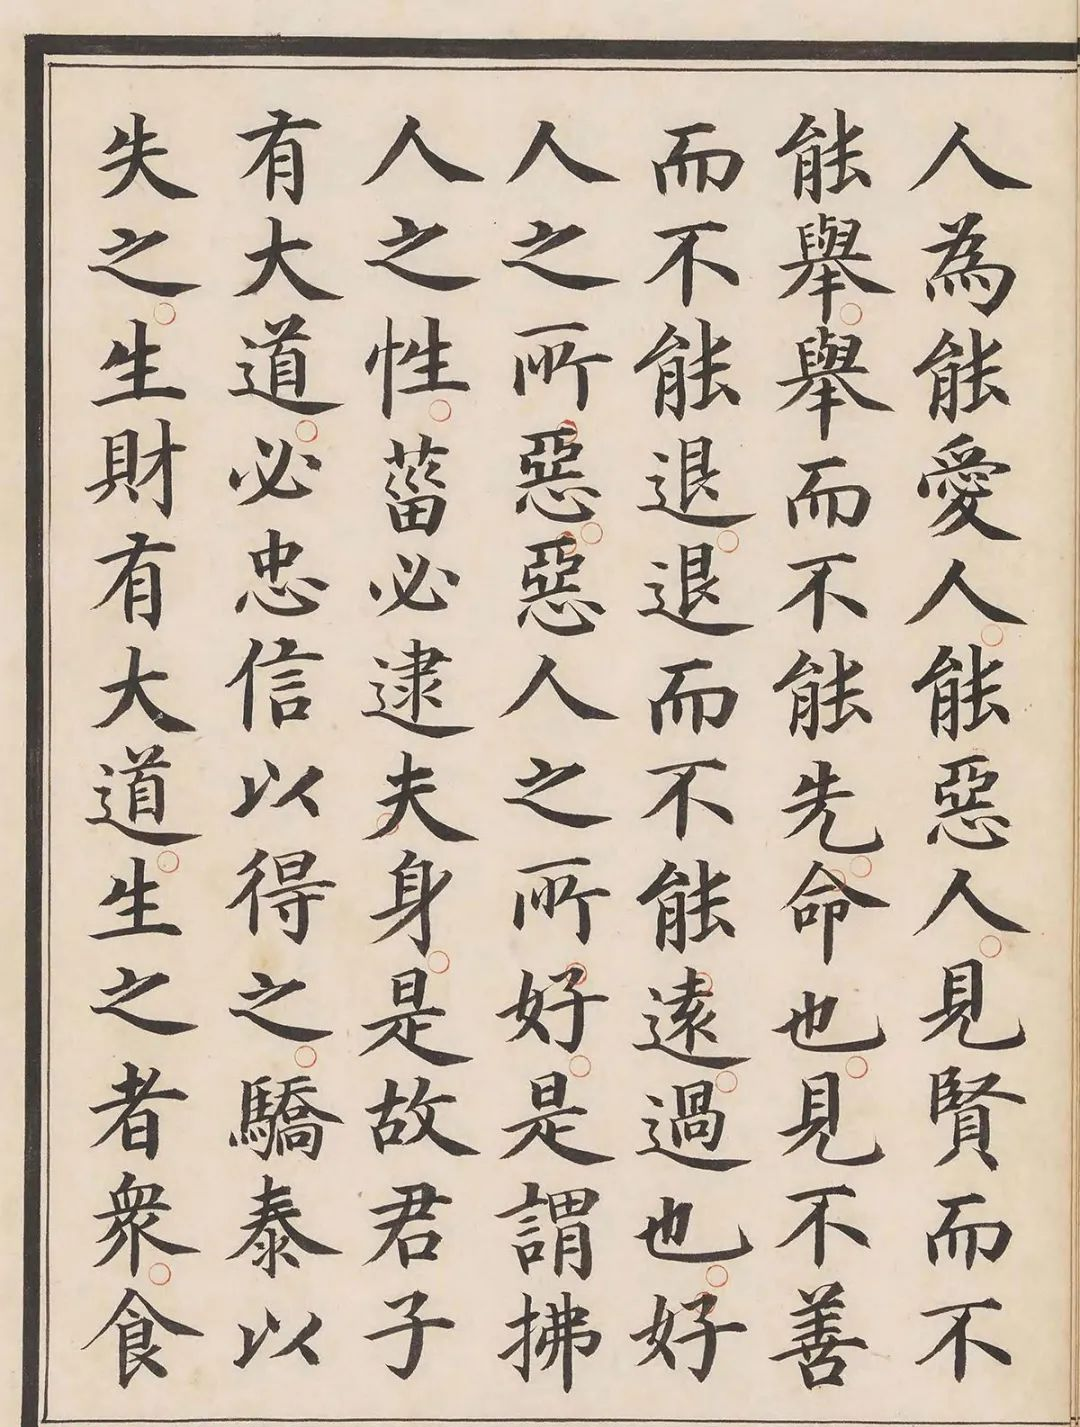 人為能愛人能惡人見賢而不
能舉舉而不能先命也見不善
而不能退退而不能遠過也好
人之所惡惡人之所好是謂拂
人之性菑必逮夫身是故君子
有大道必忠信以得之驕泰以
失之生財有大道生之者衆食